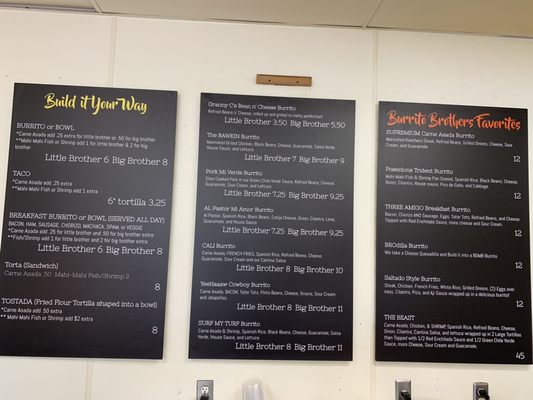 Build it Your Way
BURRITO or BOWL
*Carne Asada add .25 extra for little brother or .50 for big brother
**Mahi-Mahi Fish or Shrimp add 1 for little brother & 2 for big
brother
Little Brother 6 Big Brother 8
TACO
*Carne Asada add .25 extra
**Mahi-Mahi Fish or Shrimp add 1 extra
6" tortilla 3.25
BREAKFAST BURRITO or BOWL (SERVED ALL DAY)
BACON, HAM, SAUSAGE, CHORIZO, MACHACA, SPAM, or VEGGIE
*Carne Asada add .25 for little brother and .50 for big brother extra
**Fish/Shrimp add 1 for little brother and 2 for big brother extra
Little Brother 6 Big Brother 8
Torta (Sandwich)
Carne Asada .50 Mahi-Mahi Fish/Shrimp 2
8
TOSTADA (Fried Flour Tortilla shaped into a bowl)
*Carne Asada add .50 extra
** Mahi-Mahi Fish or Shrimp add $2 extra
8
Granny C's Bean n' Cheese Burrito
Refried Beans n' Cheese, rolled up and grilled to melty perfection!
Little Brother 3.50 Big Brother 5.50
The BAWKIN Burrito
Marinated Grilled Chicken, Black Beans, Cheese, Guacamole, Salsa Verde,
House Sauce, and Lettuce.
Little Brother 7 Big Brother 9
Pork Mi Verde Burrito
Slow Cooked Pork in our Green Chile Verde Sauce, Refried Beans, Cheese,
Guacamole, Sour Cream, and Lettuce.
Little Brother 7.25 Big Brother 9.25
AL Pastor Mi Amor Burrito
Al Pastor, Spanish Rice, Black Beans, Cotija Cheese, Onion, Cilantro, Lime,
Guacamole, and House Sauce
Little Brother 7.25 Big Brother 9.25
CALI Burrito
Carne Asada, FRENCH FRIES, Spanish Rice, Refried Beans, Cheese,
Guacamole, Sour Cream and our Cantina Salsa
Little Brother 8 Big Brother 10
YeeHaaaw Cowboy Burrito
Carne Asada, BACON, Tator Tots, Pinto Beans, Cheese, Onions, Sour Cream
and Jalapeños.
Little Brother 8 Big Brother 11
SURF MY TURF Burrito
Carne Asada & Shrimp, Spanish Rice, Black Beans, Cheese, Guacamole, Salsa
Verde, House Sauce, and Lettuce.
Little Brother 8 Big Brother 11
Burrito Brothers Favorites
SUPREMIUM Carne Asada Burrito
Marinated Ranchera Steak, Refried Beans, Grilled Onions, Cheese, Sour
Cream, and Guacamole.
12
Poseidons Trident Burrito
Mahi-Mahi Fish & Shrimp Pan Seared, Spanish Rice, Black Beans, Cheese,
Onion, Cilantro, House sauce, Pico de Gallo, and Cabbage.
12
THREE AMIGO Breakfast Burrito
Bacon, Chorizo AND Sausage, Eggs, Tator Tots, Refried Beans, and Cheese.
Topped with Red Enchilada Sauce, more cheese and Sour Cream.
12
BROdilla Burrito
We take a Cheese Quesadilla and Build it into a BOMB Burrito.
12
Saltado Style Burrito
Steak, Chicken, French Fries, White Rice, Grilled Onions, (2) Eggs over
easy, Cilantro, Pico, and Aji Sauce wrapped up in a delicious burrito!
12
THE BEAST
Carne Asada, Chicken, & SHRIMP, Spanish Rice, Refried Beans, Cheese,
Onion, Cilantro, Cantina Salsa, and lettuce wrapped up in 2 Large Tortillas
then Topped with 1/2 Red Enchilada Sauce and 1/2 Green Chile Verde
Sauce, more Cheese, Sour Cream and Guacamole.
45